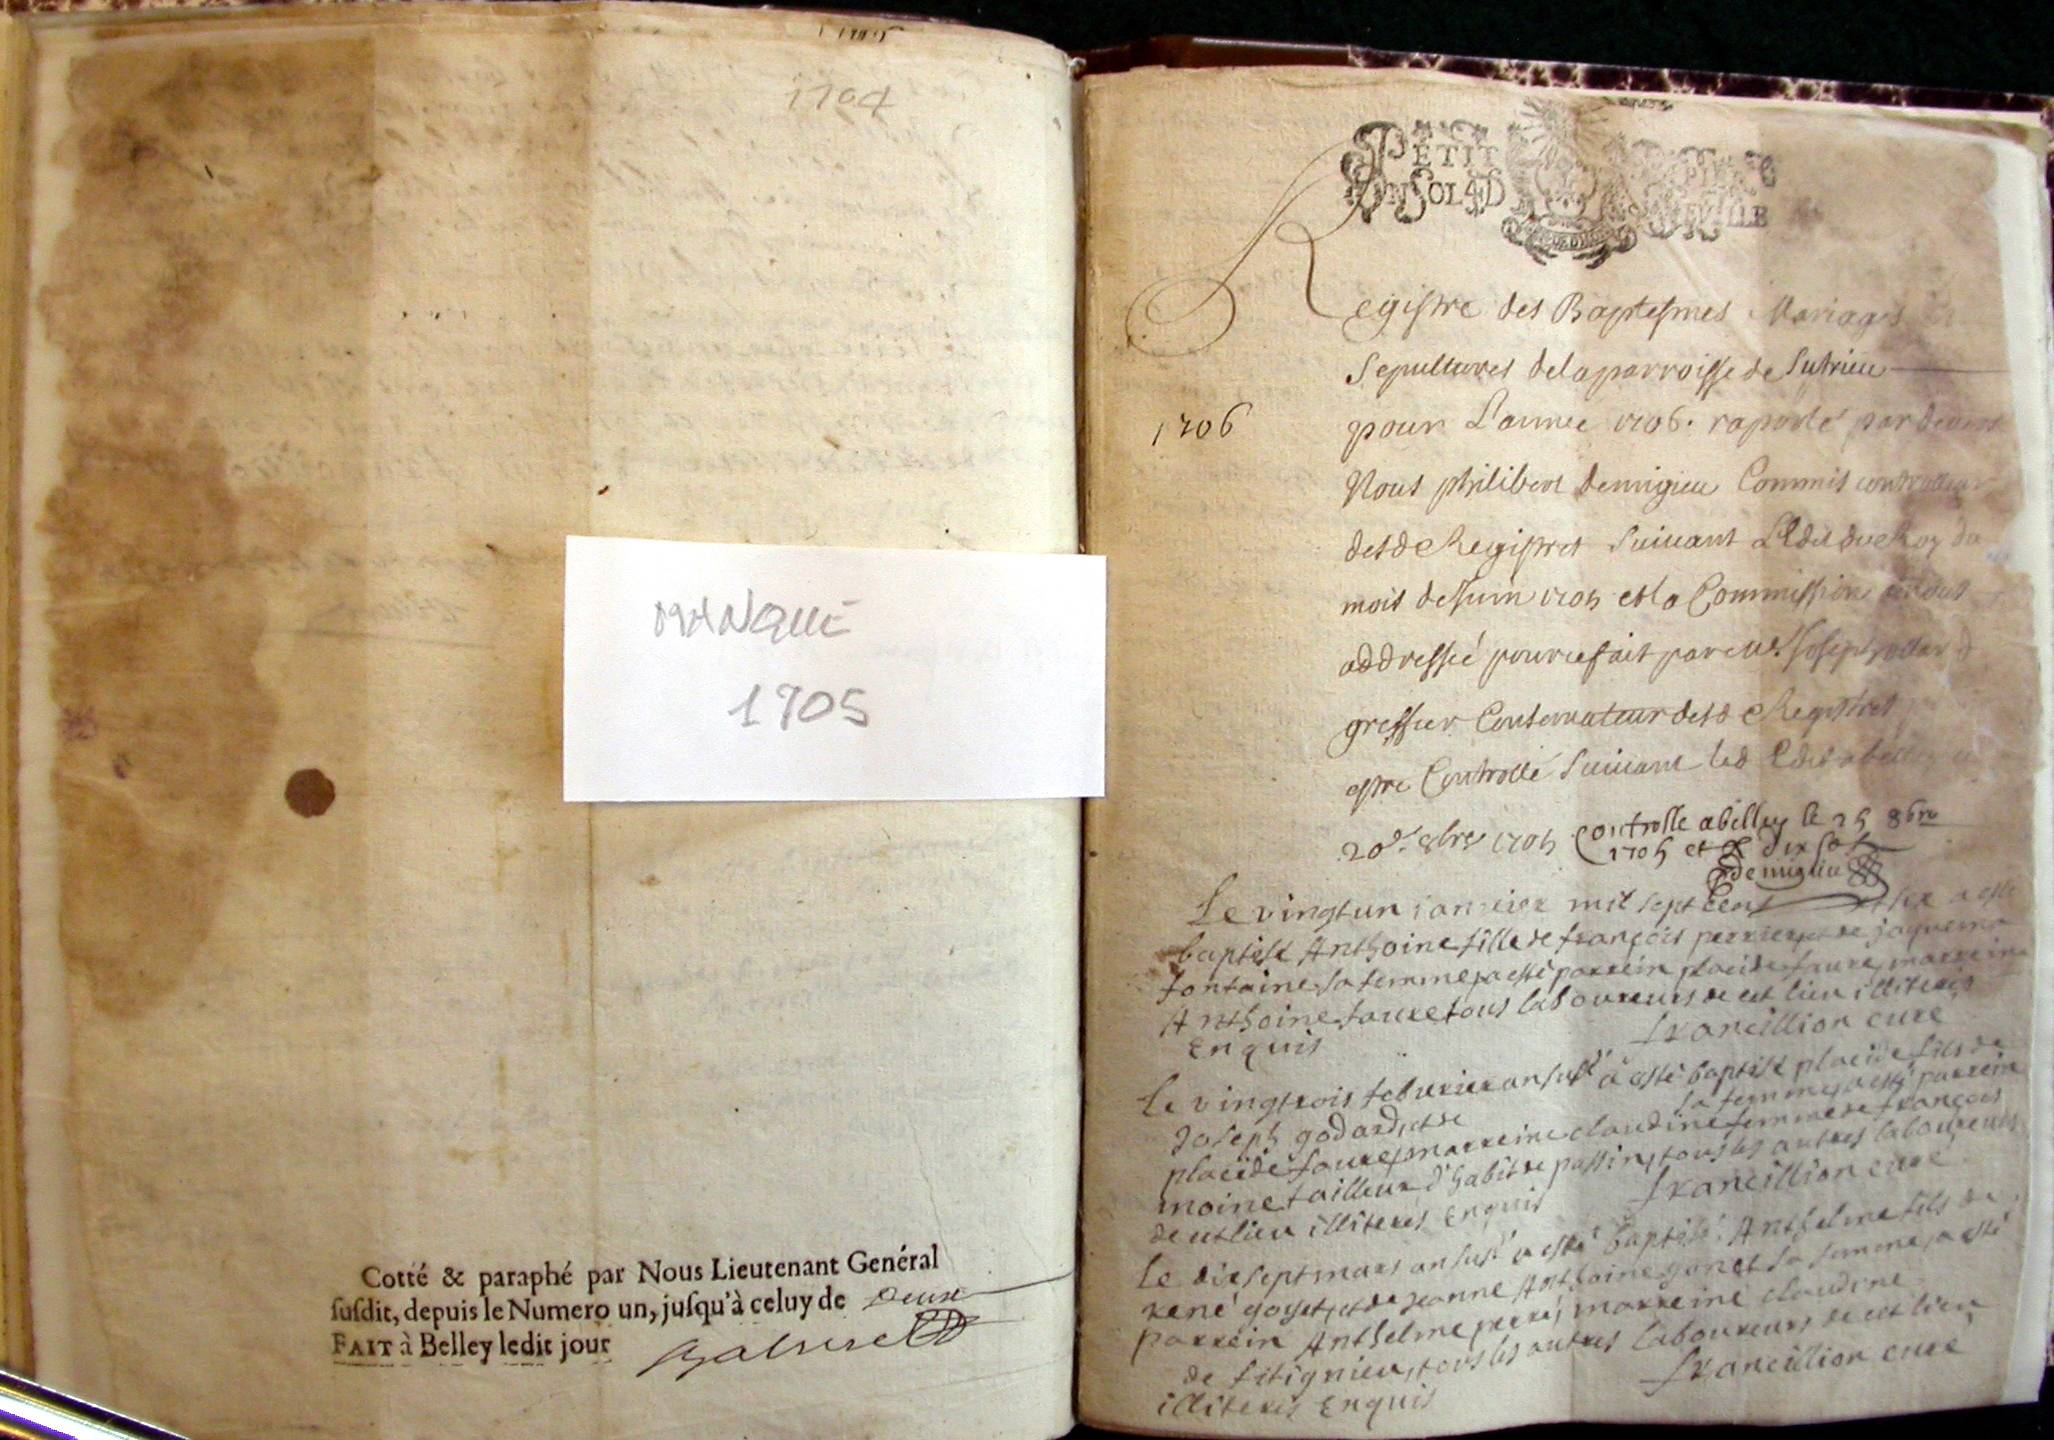 1704
MANQUE
1705
Cotté & paraphé par Nous Lieutenant Genéral
susdit, depuis le Numero un, jusqu'à celuy de Deux
FAIT à Belley ledit jour
PETIT PAPIER
UN SOL 4 D LA FVILLE
Registre des Baptesmes Mariages
Sepultures de la parroisse de Sutrieu
1706
pour L'annee 1706. raporté par devers
Nous philibert demigieu Commis controlleur
desd Registres Suivant L'Edit du Roy du
mois de Juin 1705 et la Commission a nous
addressée pour ce fait par Me. Joseph
greffier Conservateur desd Registres
estre Controllé Suivant led Edit a belley
20e. 8bre 1705 Controlle a belley le 25 8bre
1705 et R dix sols
demigieu
Le vingt un janvier mil sept cent et six a esté
baptisé Anthoine fille de françois perrier et de jaquema
fontaine sa femme, a esté parrein placide faure, marreine
Anthoine faure tous laboureurs de cet lieu illiterés
Enquis francillion curé
Le vingtrois febvrier an susd a esté baptisé placide fils de
Joseph godard, et de sa femme, a esté parrein
placide faure, marreine claudine femme de françois
moine tailleur d'habit de passin, tous les autres laboureurs
de cet lieu illiterés Enquis francillion curé
Le dix sept mars an susd a esté baptisé Anthelme fils de
rené goyet, et de jeanne Anthoine gonet sa femme, a esté
parrein Anthelme, marreine claudine
de fitignieu, tous les autres laboureurs de cet lieu
illiterés Enquis francillion curé